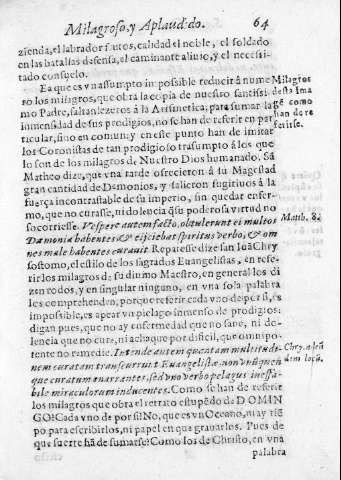 Milagroso, y Aplaudido. 64
zienda, el labrador frutos, calidad el noble, el soldado
en las batallas defensa, el caminante aliuio, y el necesi-
tado consuelo.
Ea que es vn assumpto impossible reducir à nume
ro los milagros, que obra la copia de nuestro santissi.
mo Padre, saltan zeros à la Arismetica, para sumar la
inmensidad de sus prodigios, no se han de referir en par
ticular, sino en comun; y en este punto han de imitar
los Coronistas de tan prodigioso trasumpto à los que
lo son de los milagros de Nuestro Dios humanado. Sã
Matheo dize, que vna tarde ofrecieron à su Magestad
gran cantidad de Demonios, y salieron fugitiuos à la
fuerça incontrastable de su imperio, sin quedar enfer-
mo, que no curasse, ni dolencia q̃ su poderosa virtud no
socorriesse. Vespere autem facto, obtulerunt ei multos
Dæmonia habentes & eijciebat spiritus verbo, & om
nes male habentes curauit. Reparesse dize san Iuã Chry
sostomo, el estilo de los sagrados Euangelistas, en refe-
rir los milagros de su diuino Maestro, en general los di
zen todos, y en singular ninguno, en vna sola palabra
les comprehenden, porque referir cada vno de por si, es
impossible, es apear vn pielago inmenso de prodigios:
digan pues, que no ay enfermedad que no sane, ni do-
lencia que no cure, ni achaque por dificil, que omnipo-
tente no remedie. Intende autem quotam multitudi-
nem curatam transcurrit Euangelistæ non vnũquen
que curatum enarrantes, sed vno verbo pelagus ineffa-
bile miraculorum inducentes. Como se han de referir
los milagros que obra el retrato estupẽdo de DOMIN
GO? Cada vno de por si? No, que es vn Oceano, ni ay tiẽ
po para escribirlos, ni papel en que grauarlos. Pues de
que suerte hã de sumarse? Como los de Christo, en vna
palabra
Milagros
desta Ima
gẽ como
han de re
ferirse.
Matth. 8.
Chry.
dem locũ.